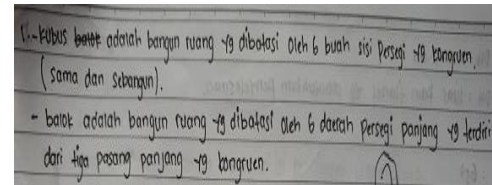 1. - kubus balok adalah bangun ruang yg dibatasi oleh 6 buah sisi persegi yg kongruen.
(sama dan sebangun).
- balok adalah bangun ruang yg dibatasi oleh 6 daerah persegi panjang yg terdiri
dari tiga pasang panjang yg kongruen.